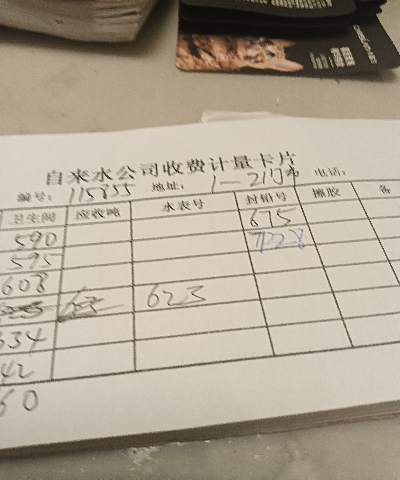 自来水公司收费计量卡片
编号: 115855 地址: 1—21门市 电话:
卫生间 应收吨 水表号 封铅号 橡胶 备
675
590 7728
595
608
63 623
634
42
60